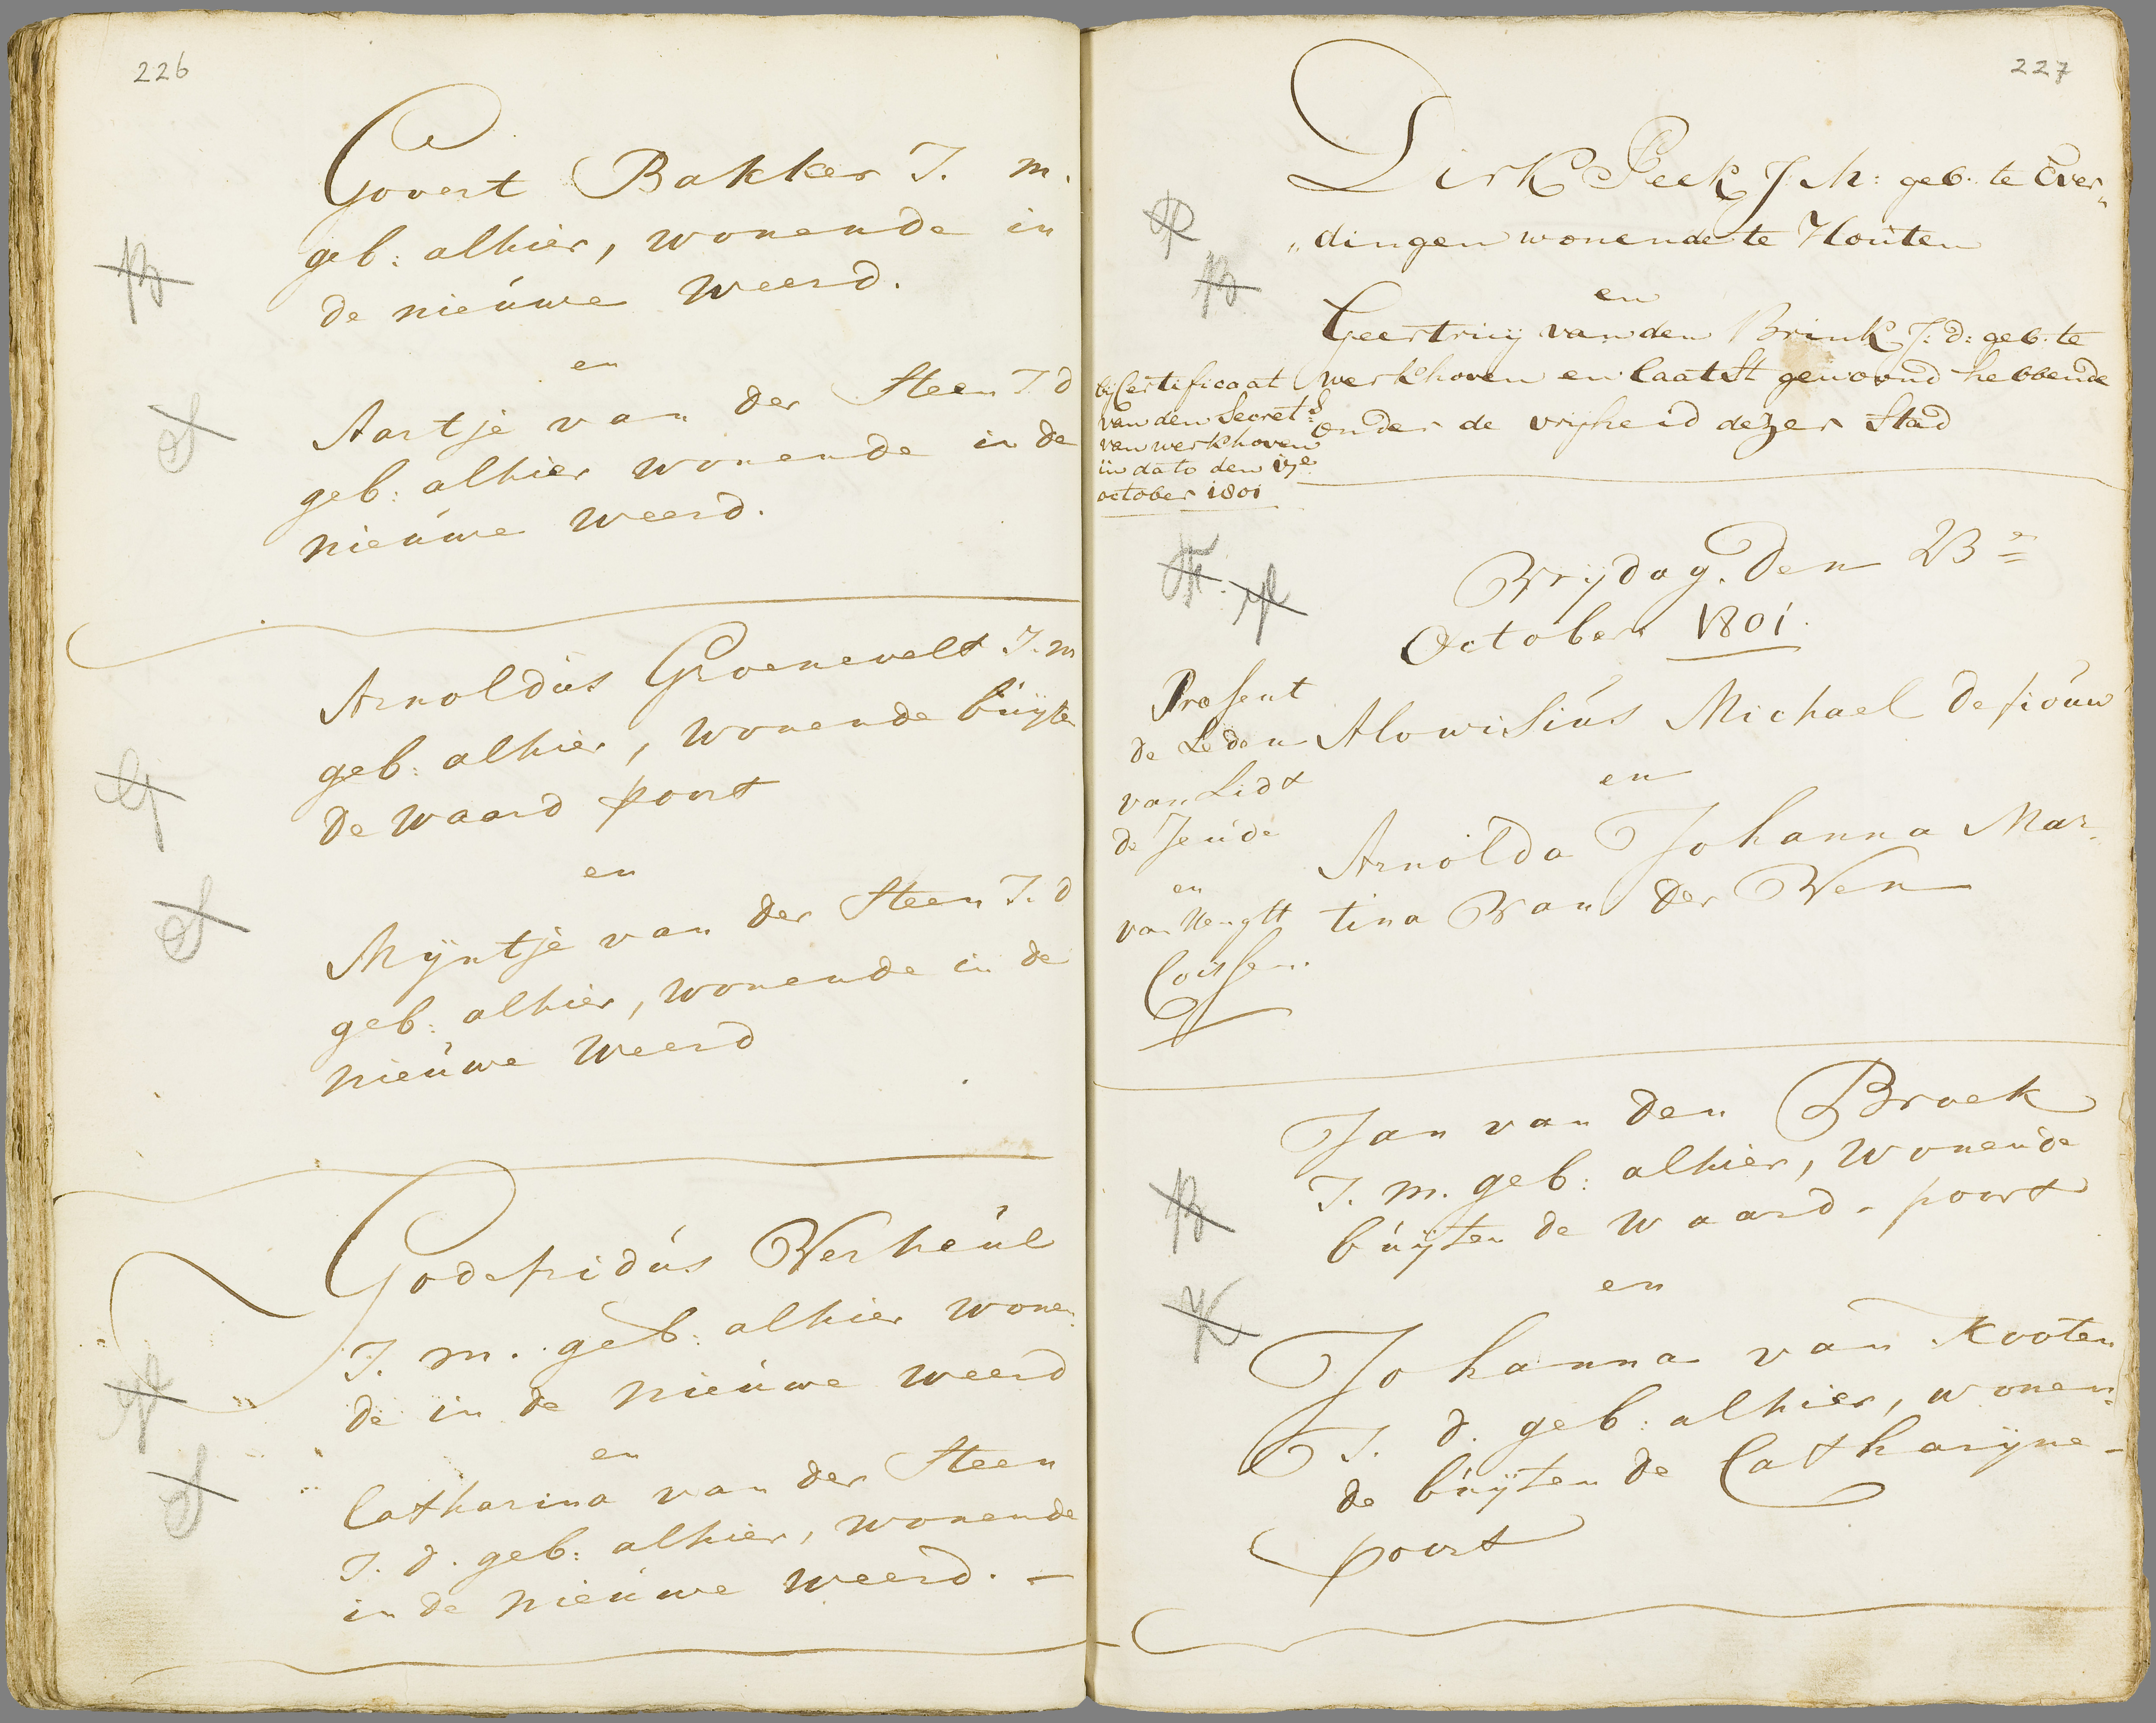 226
Govert Bakker J. m.
geb: alhier, wonende in
de nieúwe weerd.
en
Aartje van der Steen J. d
geb: alhier wonende in de
nieúwe weerd.
Arnoldús Groenevelt J. m
geb: alhier, wonende búÿten
de waard poort
en
Mÿntje van der Steen J. d
geb: alhier, wonende in de
nieúwe weerd
Godefridús Verheúl
J. m. geb: alhier wonen
de in de nieúwe weerd
en
Catharina van der Steen
J. d. geb: alhier, wonende
in de nieúwe weerd. -
227
Dirk Peek J M: geb: te Ever„
„dingen wonende te Houten
en
Geertruij van den Brink J: d: geb: te
werkhoven en laatst gewoond hebbende
onder de vrijheid dezer Stad
bij Certificaat
van den Secret:s
van werkhoven
in dato den 17e
october 1801
Vrÿdag. den 23e
October 1801.
Present
de Leden
van Lidt
de Jeúde
en
van Hengst
Alowisiús Michael
en
Arnolda Johanna Mar
tina Van der Ven
Jan van den Broek
J. m. geb: alhier, wonende
búÿten de waard-poort
en
Johanna van Kooten
J. d. geb: alhier, wonen
de búÿten de Catharÿne-
poort